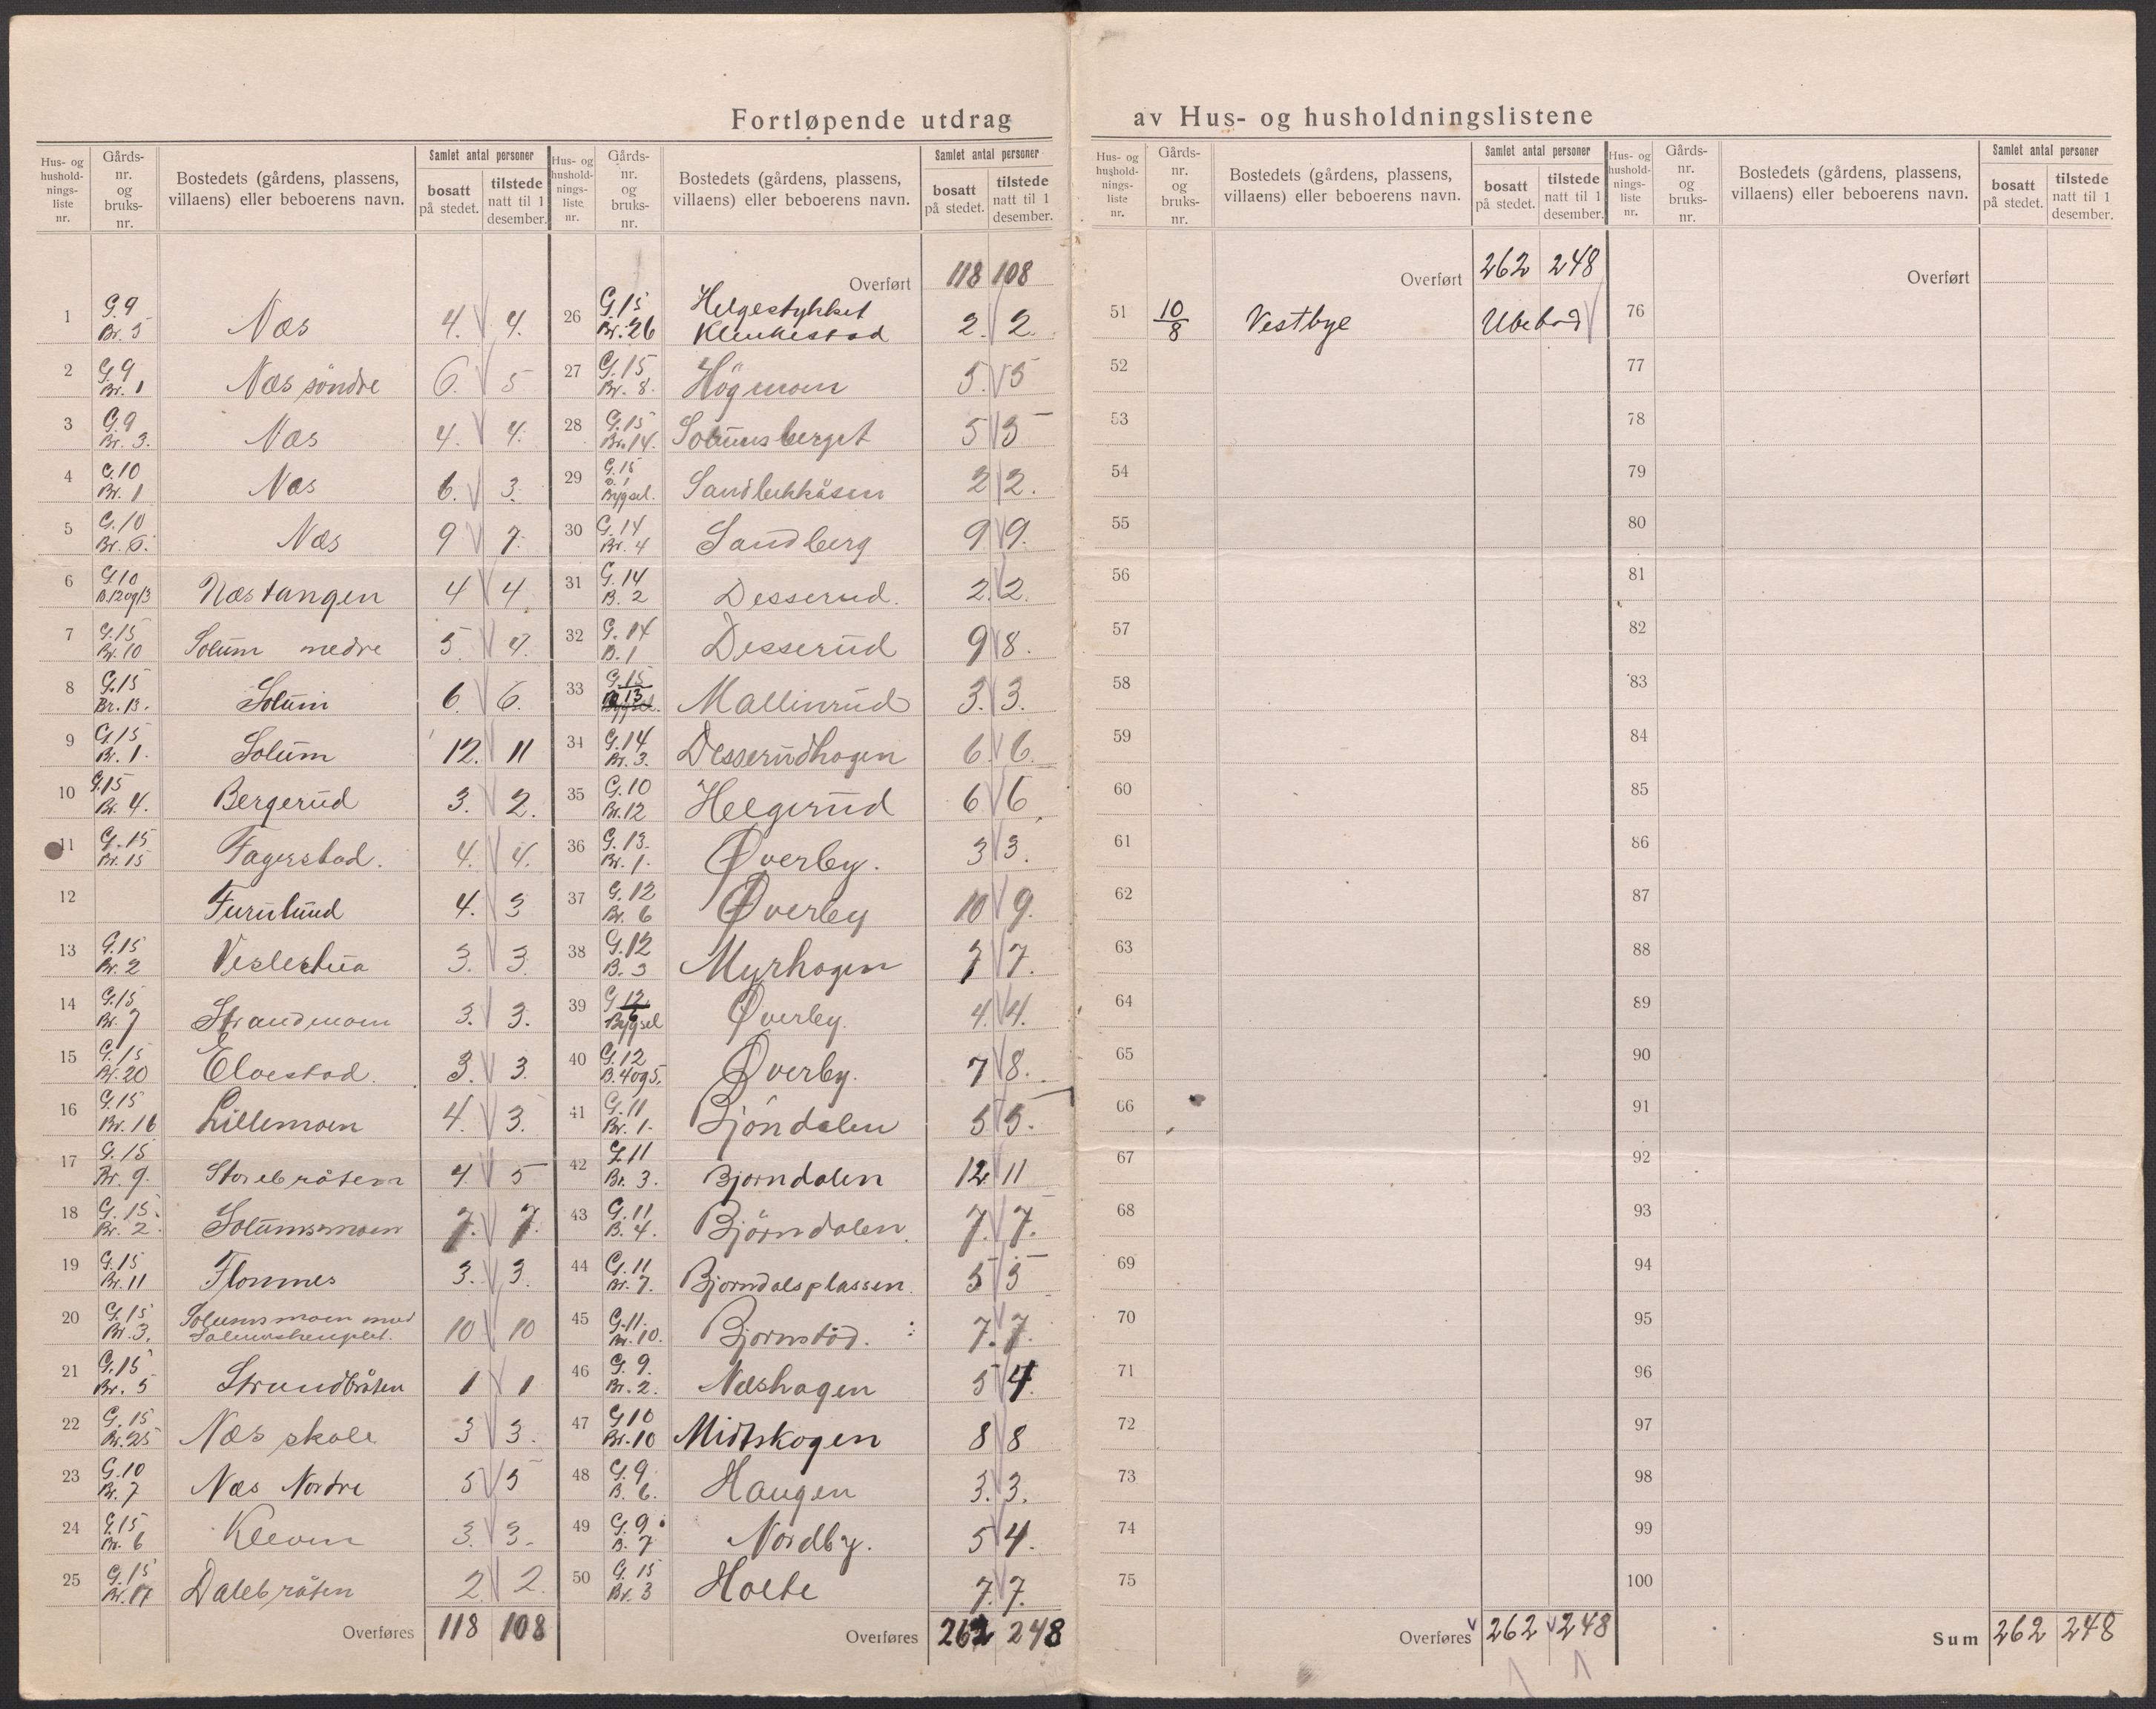 Fortløpende utdrag av Hus- og husholdningslistene
Hus- og hushold-nings-liste nr. Gårds-nr. og bruks-nr. Bostedets (gårdens, plassens, villaens) eller beboerens navn. Samlet antal personer bosatt på stedet. tilstede natt til 1 desember.
1 G. 9 Br. 5 Næs 4. 4.
2 G. 9 Br. 1 Næs söndre 6. 5
3 G. 9 Br. 3. Næs 4. 4.
4 G. 10 Br. 1 Næs 6. 3.
5 G. 10 Br. 6. Næs 9 7.
6 G. 10 B. 12 og 13 Næstangen 4 4.
7 G. 15 Br. 10 Solum nedre 5 4.
8 G. 15 Br. 13. Solum 6. 6.
9 G. 15 Br. 1. Solum 12. 11
10 G. 15 Br. 4. Bergerud 3. 2.
11 G. 15 Br. 15 Fagerstad. 4. 4.
12 Furulund 4. 3
13 G. 15 Br. 2 Veslestua 3. 3.
14 G. 15 Br. 7 Strandmoen 3. 3.
15 G. 15 Br. 20 Elvestad. 3. 3.
16 G. 15 Br. 16 Lillemoen 4. 3.
17 G. 15 Br. 9. Storebråten 4. 5
18 G. 15. Br. 2. Solumsmoen 7. 7.
19 G. 15 Br. 11 Flonnes 3. 3.
20 G. 15 Br. 3. Solumsmoen med 10 10
21 G. 15 Br. 5 Strandbråten 1 1
22 G. 15 Br. 25 Næs skole 3 3.
23 G. 10 Br. 7 Næs Nordre 5 5
24 G. 15 Br. 6 Kleven 3. 3.
25 G. 15 Br. 17 Dalebråten 2 2.
Overføres 118 108
Hus- og hushold-nings-liste nr. Gårds-nr. og bruks-nr. Bostedets (gårdens, plassens, villaens) eller beboerens navn. Samlet antal personer bosatt på stedet. tilstede natt til 1 desember.
Overført 118 108
26 G. 15 Br. 26 Helgestykket
Klenkestad 2. 2.
27 G. 15 Br. 8. Högmoen 5. 5
28 G. 15 Br. 14. Solumsberget 5 5
29 G. 15 Bygsel. Sandbekkåsen 2 2.
30 G. 14 Br. 4 Sandberg 9 9.
31 G. 14 B. 2 Desserud. 2. 2.
32 G. 14 B. 1 Desserud 9 8.
33 G. 15 13 Bygsel. Mallinrud 3. 3.
34 G. 14 Br. 3. Desserudhagen 6. 6.
35 G. 10 Br. 12 Helgerud 6 6
36 G. 13. Br. 1. Øverby. 3 3.
37 G. 12 Br. 6 Øverby 10 9.
38 G. 12 B. 3 Myrhagen 7 7.
39 G. 12 Bygsel Øverby. 4. 4.
40 G. 12 B. 4 og 5. Øverby. 7 8.
41 G. 11 Br. 1. Bjöndalen 5 5.
42 G. 11 Br. 3. Bjorndalen 12 11
43 G. 11 B. 4. Björndalen. 7. 7.
44 G. 11 Br. 7. Bjorndalsplassen. 5 5
45 G. 11. Br. 10. Bjornstad. 7. 7.
46 G. 9. Br. 2. Næshagen 5 4.
47 G. 10 Br. 10 Midtskogen 8 8
48 G. 9 B. 6. Haugen 3. 3.
49 G. 9. B. 7 Nordby. 5 4.
50 G. 15 Br. 3 Holte 7. 7.
Overføres 262 248
Hus- og hushold-nings-liste nr. Gårds-nr. og bruks-nr. Bostedets (gårdens, plassens, villaens) eller beboerens navn. Samlet antal personer bosatt på stedet. tilstede natt til 1 desember.
Overført 262 248
51 10/8 Vestbye Ubebod
52
53
54
55
56
57
58
59
60
61
62
63
64
65
66
67
68
69
70
71
72
73
74
75
Overføres 262 248
Hus- og hushold-nings-liste nr. Gårds-nr. og bruks-nr. Bostedets (gårdens, plassens, villaens) eller beboerens navn. Samlet antal personer bosatt på stedet. tilstede natt til 1 desember.
Overført
76
77
78
79
80
81
82
83
84
85
86
87
88
89
90
91
92
93
94
95
96
97
98
99
100
Sum 262 248